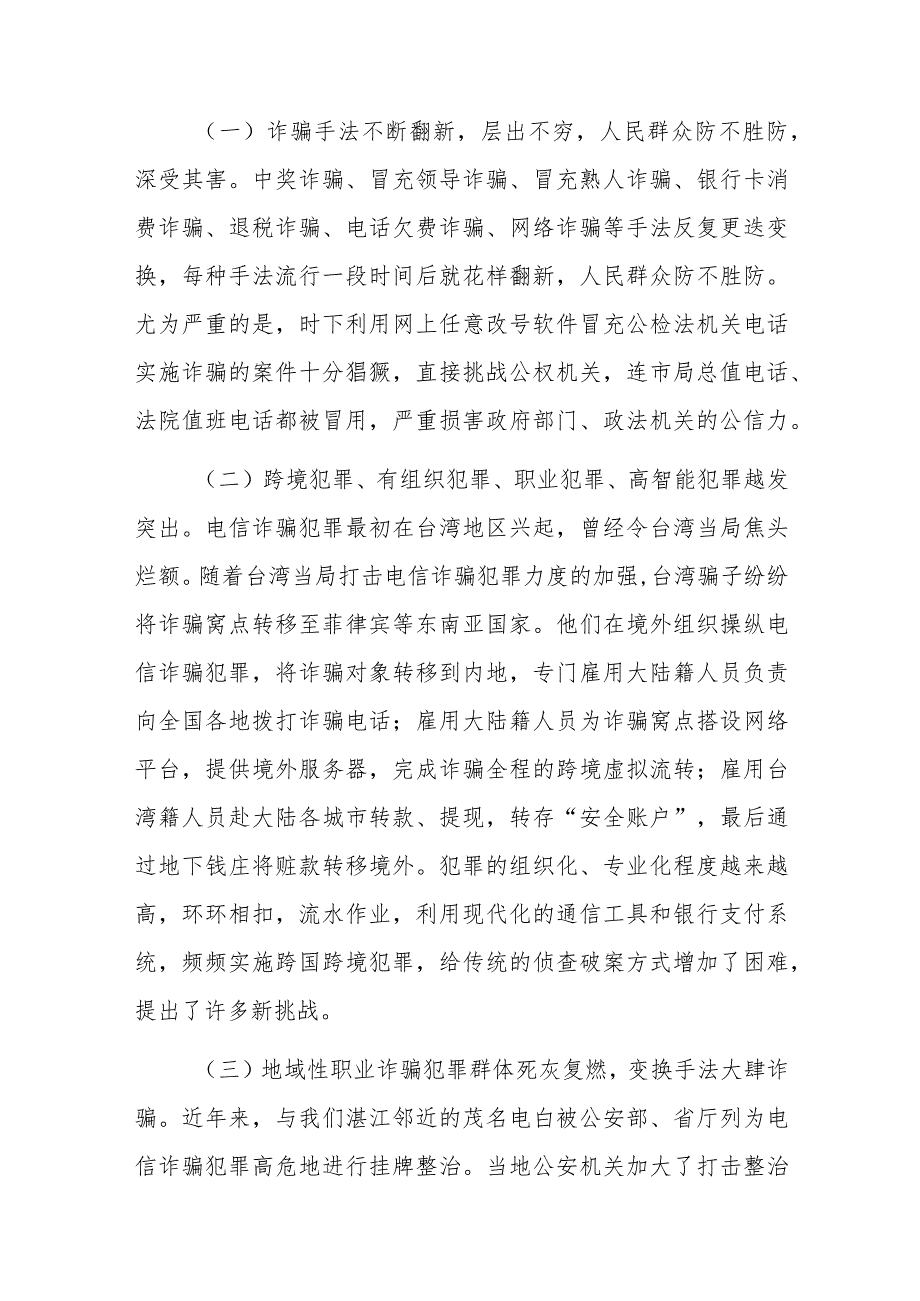 （一）诈骗手法不断翻新，层出不穷，人民群众防不胜防，
深受其害。中奖诈骗、冒充领导诈骗、冒充熟人诈骗、银行卡消
费诈骗、退税诈骗、电话欠费诈骗、网络诈骗等手法反复更迭变
换，每种手法流行一段时间后就花样翻新，人民群众防不胜防。
尤为严重的是，时下利用网上任意改号软件冒充公检法机关电话
实施诈骗的案件十分猖獗，直接挑战公权机关，连市局总值电话、
法院值班电话都被冒用，严重损害政府部门、政法机关的公信力。
（二）跨境犯罪、有组织犯罪、职业犯罪、高智能犯罪越发
突出。电信诈骗犯罪最初在台湾地区兴起，曾经令台湾当局焦头
烂额。随着台湾当局打击电信诈骗犯罪力度的加强,台湾骗子纷纷
将诈骗窝点转移至菲律宾等东南亚国家。他们在境外组织操纵电
信诈骗犯罪，将诈骗对象转移到内地，专门雇用大陆籍人员负责
向全国各地拨打诈骗电话；雇用大陆籍人员为诈骗窝点搭设网络
平台，提供境外服务器，完成诈骗全程的跨境虚拟流转；雇用台
湾籍人员赴大陆各城市转款、提现，转存“安全账户”，最后通
过地下钱庄将赃款转移境外。犯罪的组织化、专业化程度越来越
高，环环相扣，流水作业，利用现代化的通信工具和银行支付系
统，频频实施跨国跨境犯罪，给传统的侦查破案方式增加了困难，
提出了许多新挑战。
（三）地域性职业诈骗犯罪群体死灰复燃，变换手法大肆诈
骗。近年来，与我们湛江邻近的茂名电白被公安部、省厅列为电
信诈骗犯罪高危地进行挂牌整治。当地公安机关加大了打击整治